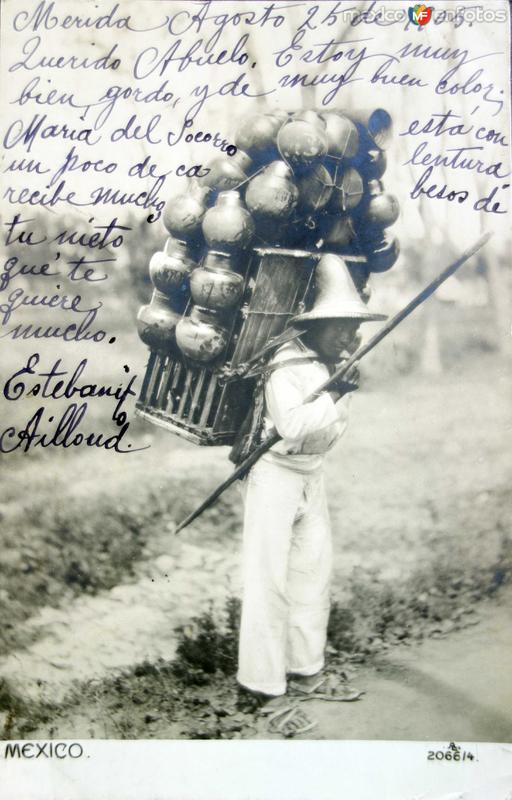 Merida Agosto 25 de
mexicoenfotos
Querido Abuelo. Estoy muy
bien, gordo, y de muy buen color;
Maria del Socorro está con
un poco de calentura
recibe mucho besos de
tu nieto
que te
quiere
mucho.
Estebanito
Ailloud.
MEXICO.
20661/4.